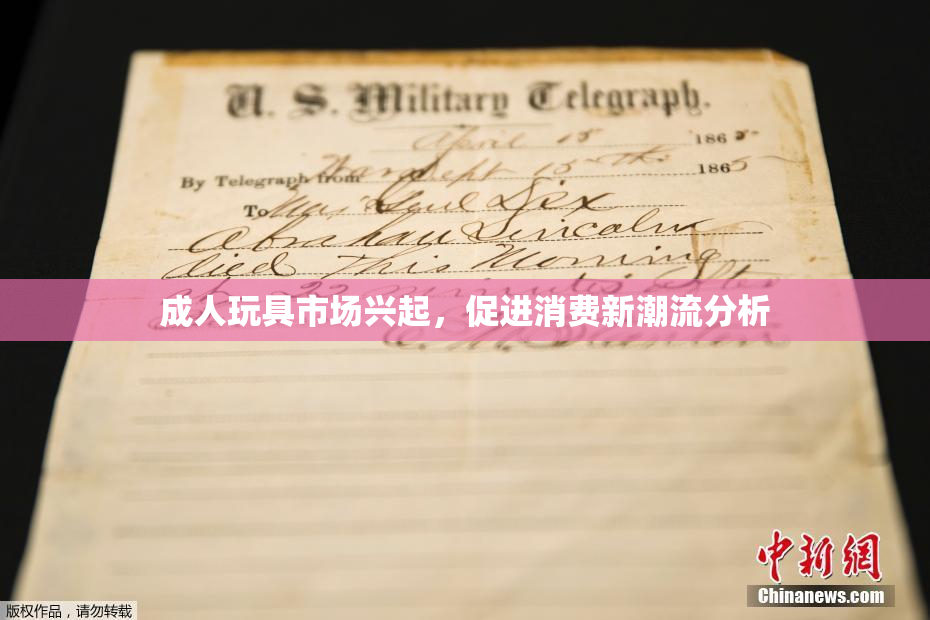 U. S. Military Telegraph.
April 15 1865
By Telegraph from War Dept 15th 1865
To Maj Genl Dix
Abraham Lincoln
died This Morning
at 22 minutes after
成人玩具市场兴起，促进消费新潮流分析
E. M. Stanton
中新网
Chinanews.com
版权作品，请勿转载